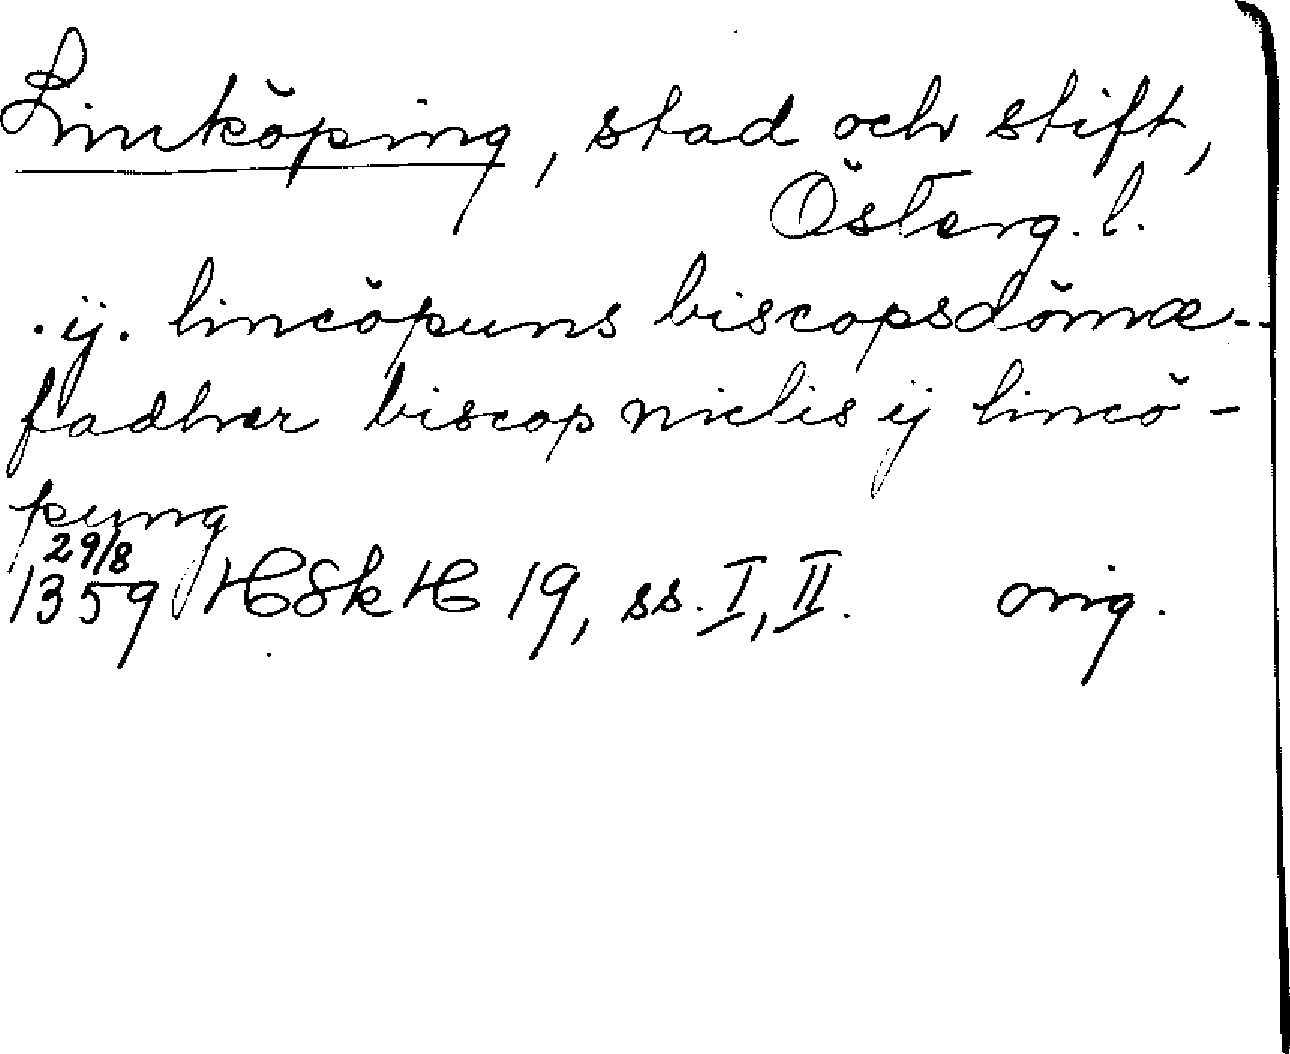 Linköping, stad och stift,
Österg. l.
. ij. lincöpuns biscopsdömæ--
fadhær biscop niclis ij lincö-
pung
29/8
1359 HSkH 19, ss. I, II. orig.